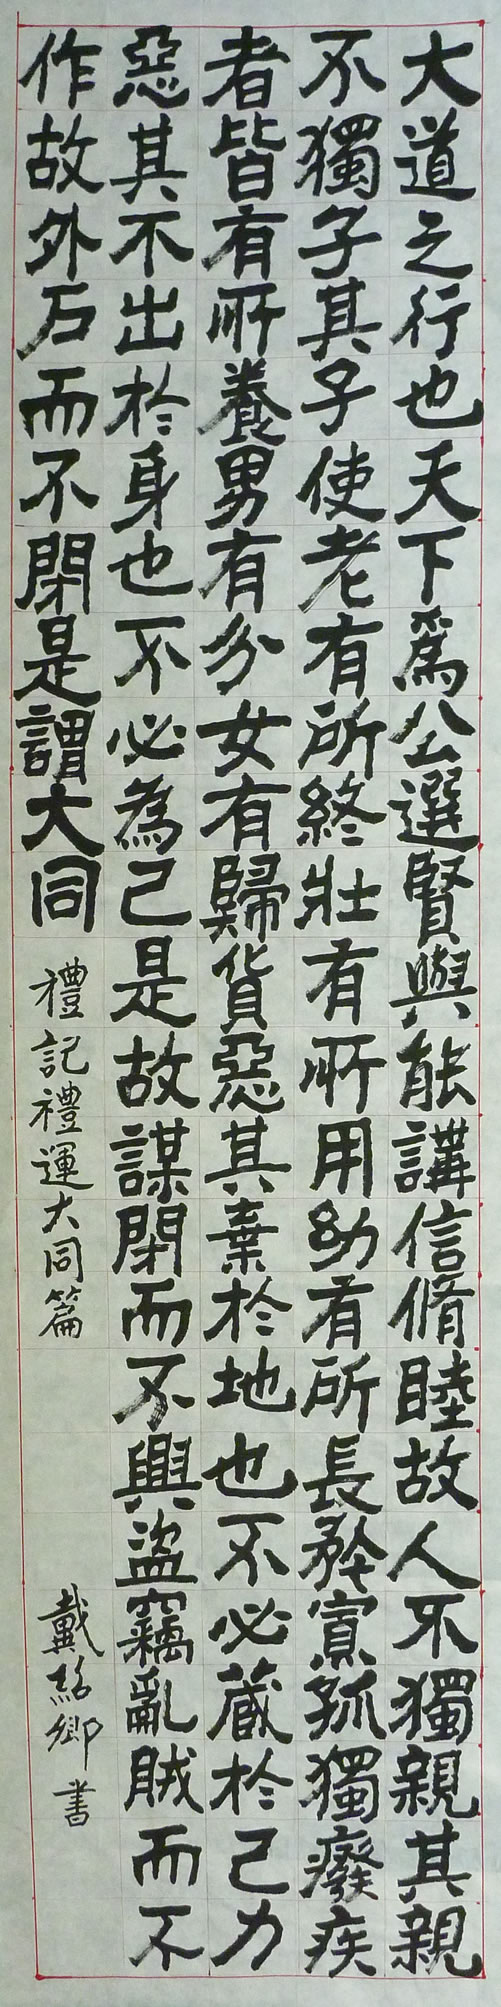 大道之行也天下爲公選賢與能講信脩睦故人不獨親其親
不獨子其子使老有所終壯有所用幼有所長矜寡孤獨癈疾
者皆有所養男有分女有歸貨惡其棄於地也不必藏於己力
惡其不出於身也不必為己是故謀閉而不興盜竊亂賊而不
作故外石而不閉是謂大同
禮記禮運大同篇
戴紹鄉書